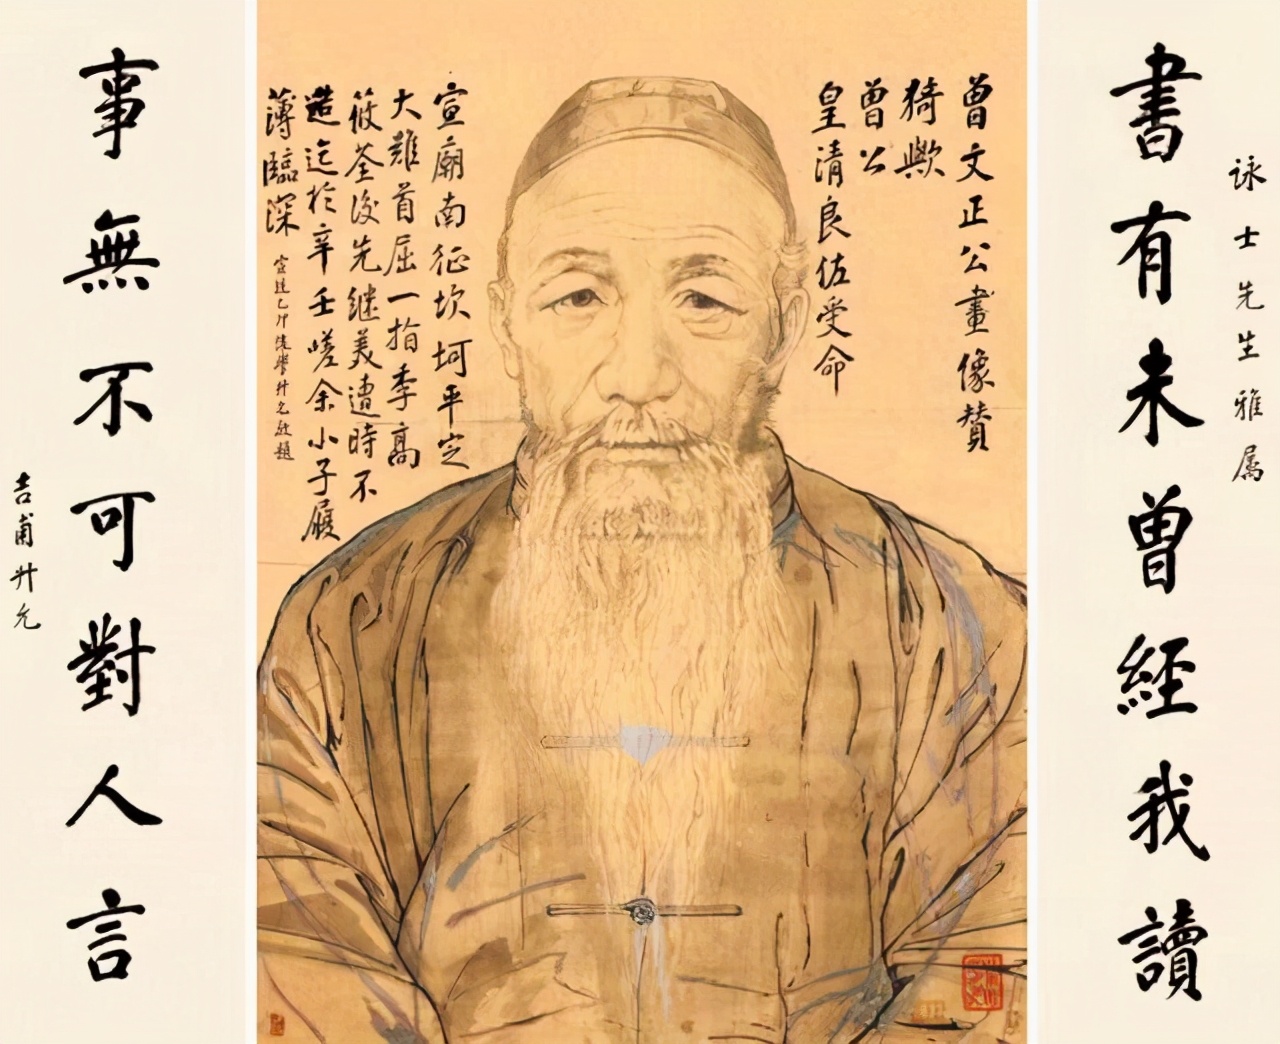 詠士先生雅属
書有未曾經我讀
曾文正公畫像贊
猗歟
曾公
皇清良佐受命
宣廟南征坎坷平定
大難首屈一指季高
筱荃後先継美遭時不
造迄於辛壬嗟余小子履
薄臨深
宣統乙卯後學升允敬題
事無不可對人言
吉甫升允